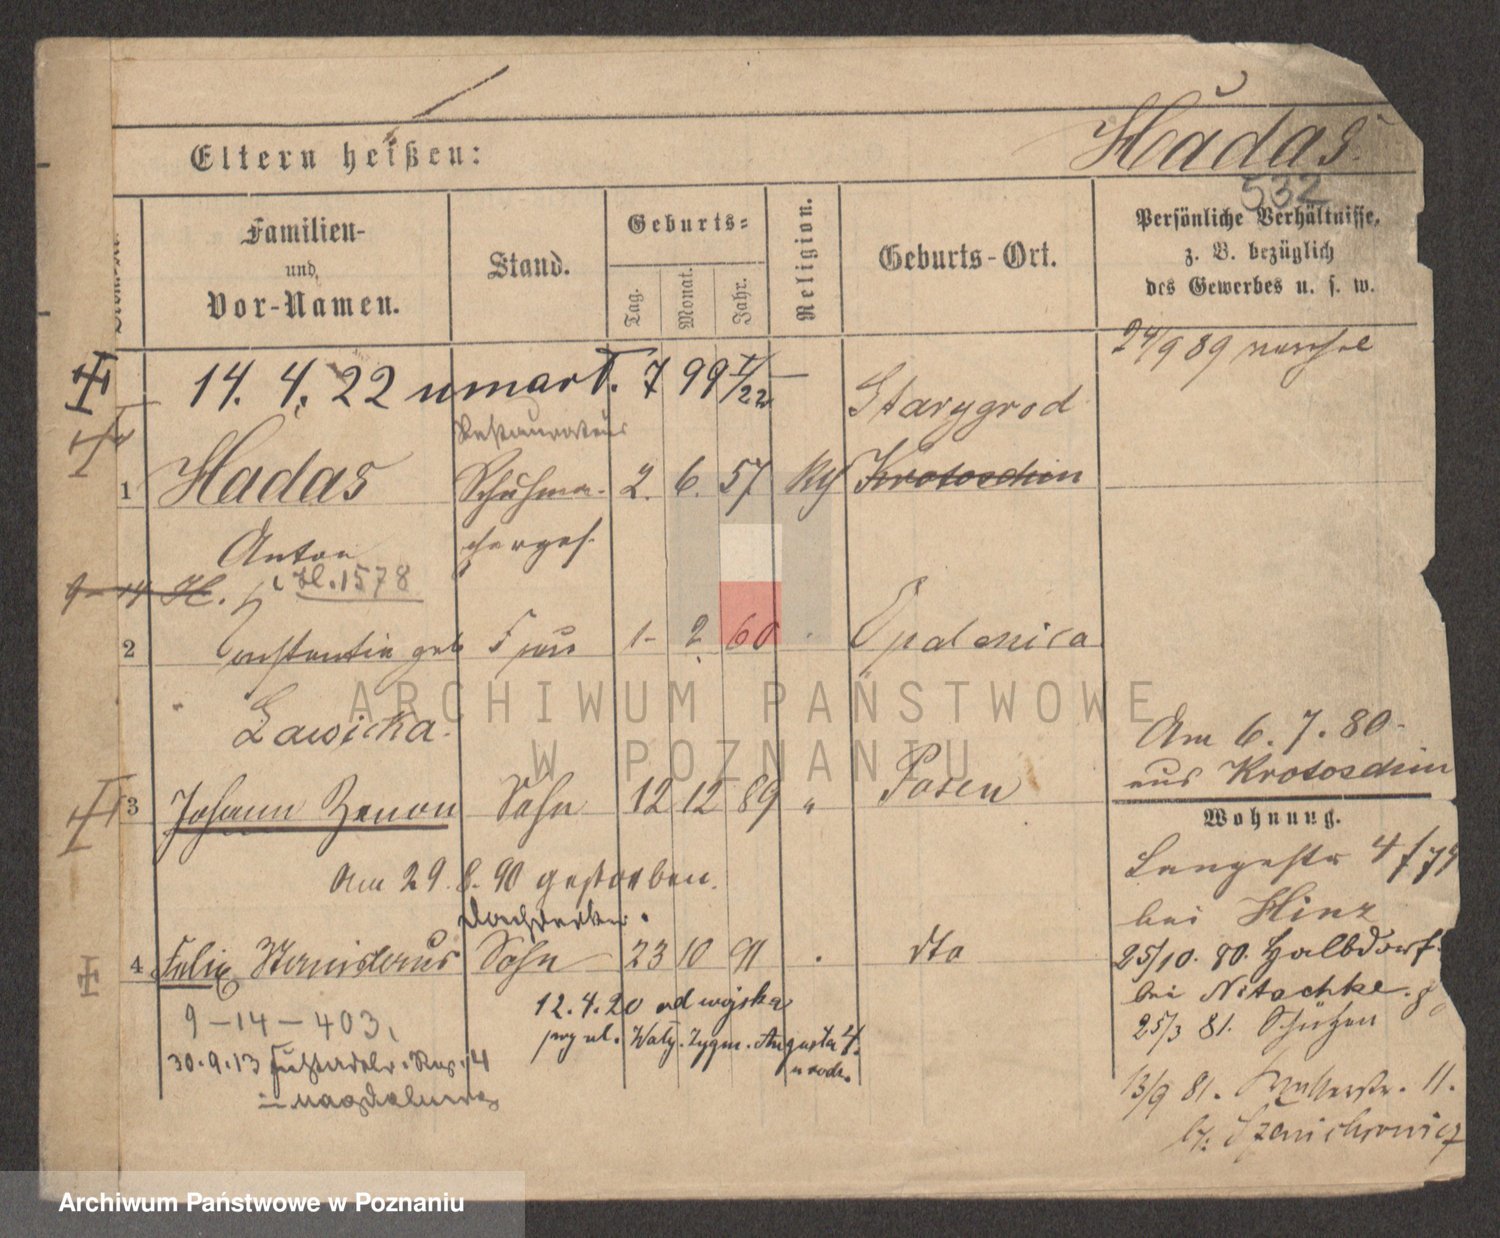 Eltern heißen:
Hadas.
532
Familien- und Vor-Namen.
Stand.
Geburts-
Tag.
Monat.
Jahr.
Religion.
Geburts-Ort.
Persönliche Verhältnisse,
z. B. bezüglich
des Gewerbes u. s. w.
24/9 89
14. 4. 22 umarł. 7 99 I/22
Starygrod
Restaurateur
1 Hadas Schuhma- 2. 6. 57 kth Krotoschin
Anton chergес.
9-14 H. H. 1578
2 Constantia geb Frau 1 2 60 Opalenica
Ławicka.
ARCHIWUM PAŃSTWOWE
W POZNANIU
Am 6. 7. 80
aus Krotoschin
3 Johann Zenon Sohn 12 12 89 " Posen
Wohnung.
Langestr 4 / 79
am 29. 8. 90 gestorben.
bei Hinz
Dachdecker.
4 Felix Stanislaus Sohn 23 10 91 . dto
25/10. 80. Halbdorf
bei Nitschke. 8
25/3 81. Schützen
9-14-403,
12.4.20 od wojska
przy ul. Wały. Zygm. Augusta 4.
u rodz.
30.9.13 Fußartolr. Reg. 4
in Magdeburg
13/9 81. 11.
b.
Archiwum Państwowe w Poznaniu